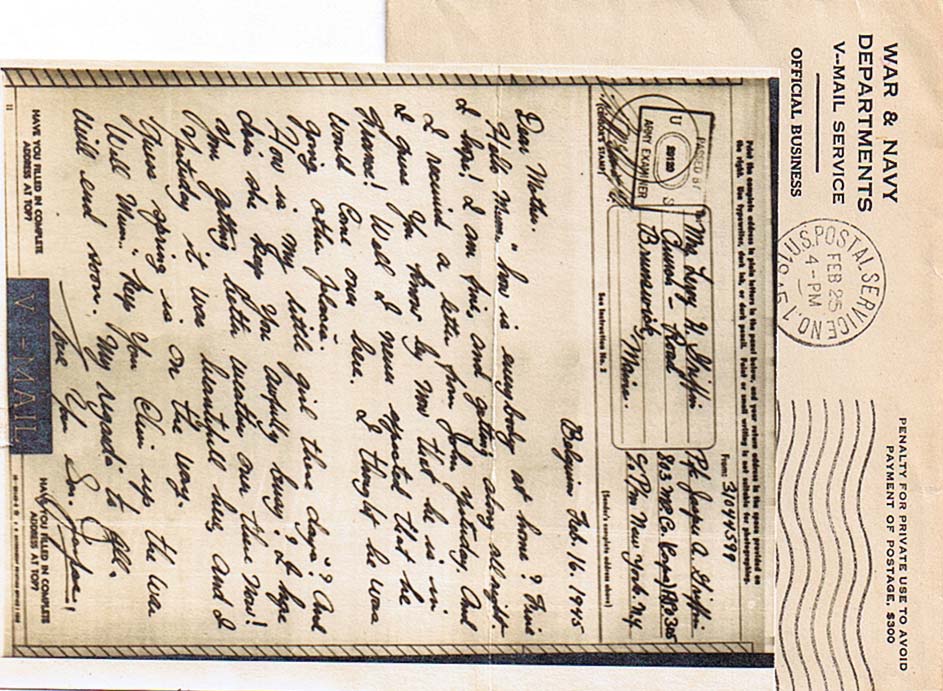 WAR & NAVY
DEPARTMENTS
V--MAIL SERVICE
OFFICIAL BUSINESS
U.S. POSTAL SERVICE NO. 1
FEB 25
4-PM
1945
PENALTY FOR PRIVATE USE TO AVOID
PAYMENT OF POSTAGE, $300
Print the complete address in plain letters in the panel below, and your return address in the space provided on
the right. Use typewriter, dark ink, or dark pencil. Faint or small writing is not suitable for photographing.
PASSED BY
U S
ARMY EXAMINER
(CENSOR'S STAMP)
To: Mrs Lucy H. Griffin
Church - Road
Brunswick,
Maine.
See Instruction No. 2
From: 31044599
Pvt Jasper A. Griffin
803 M.P. Co. (Corps) APO 305
C/o P/m New York N.Y.
(Sender's complete address above)
Belgium Feb. 16, 1945
Dear Mother.
Hello Mum, how is everybody at home? Fine
I hope! I am fine, and getting along all right
I received a letter from John yesterday. And
I guess you know by now that he is in
France! Well I never expected that he
would come over here. I thought he was
going other places.
How is my little girl these days? And
does she keep you awfully busy? I hope
you getting better weather over there now!
Yesterday it was beautiful here and I
guess spring is on the way.
Well Mum, keep your chin up the war
will end soon. My regards to all.
Love Your Son. Jasper!
HAVE YOU FILLED IN COMPLETE
ADDRESS AT TOP?
V-MAIL
HAVE YOU FILLED IN COMPLETE
ADDRESS AT TOP?